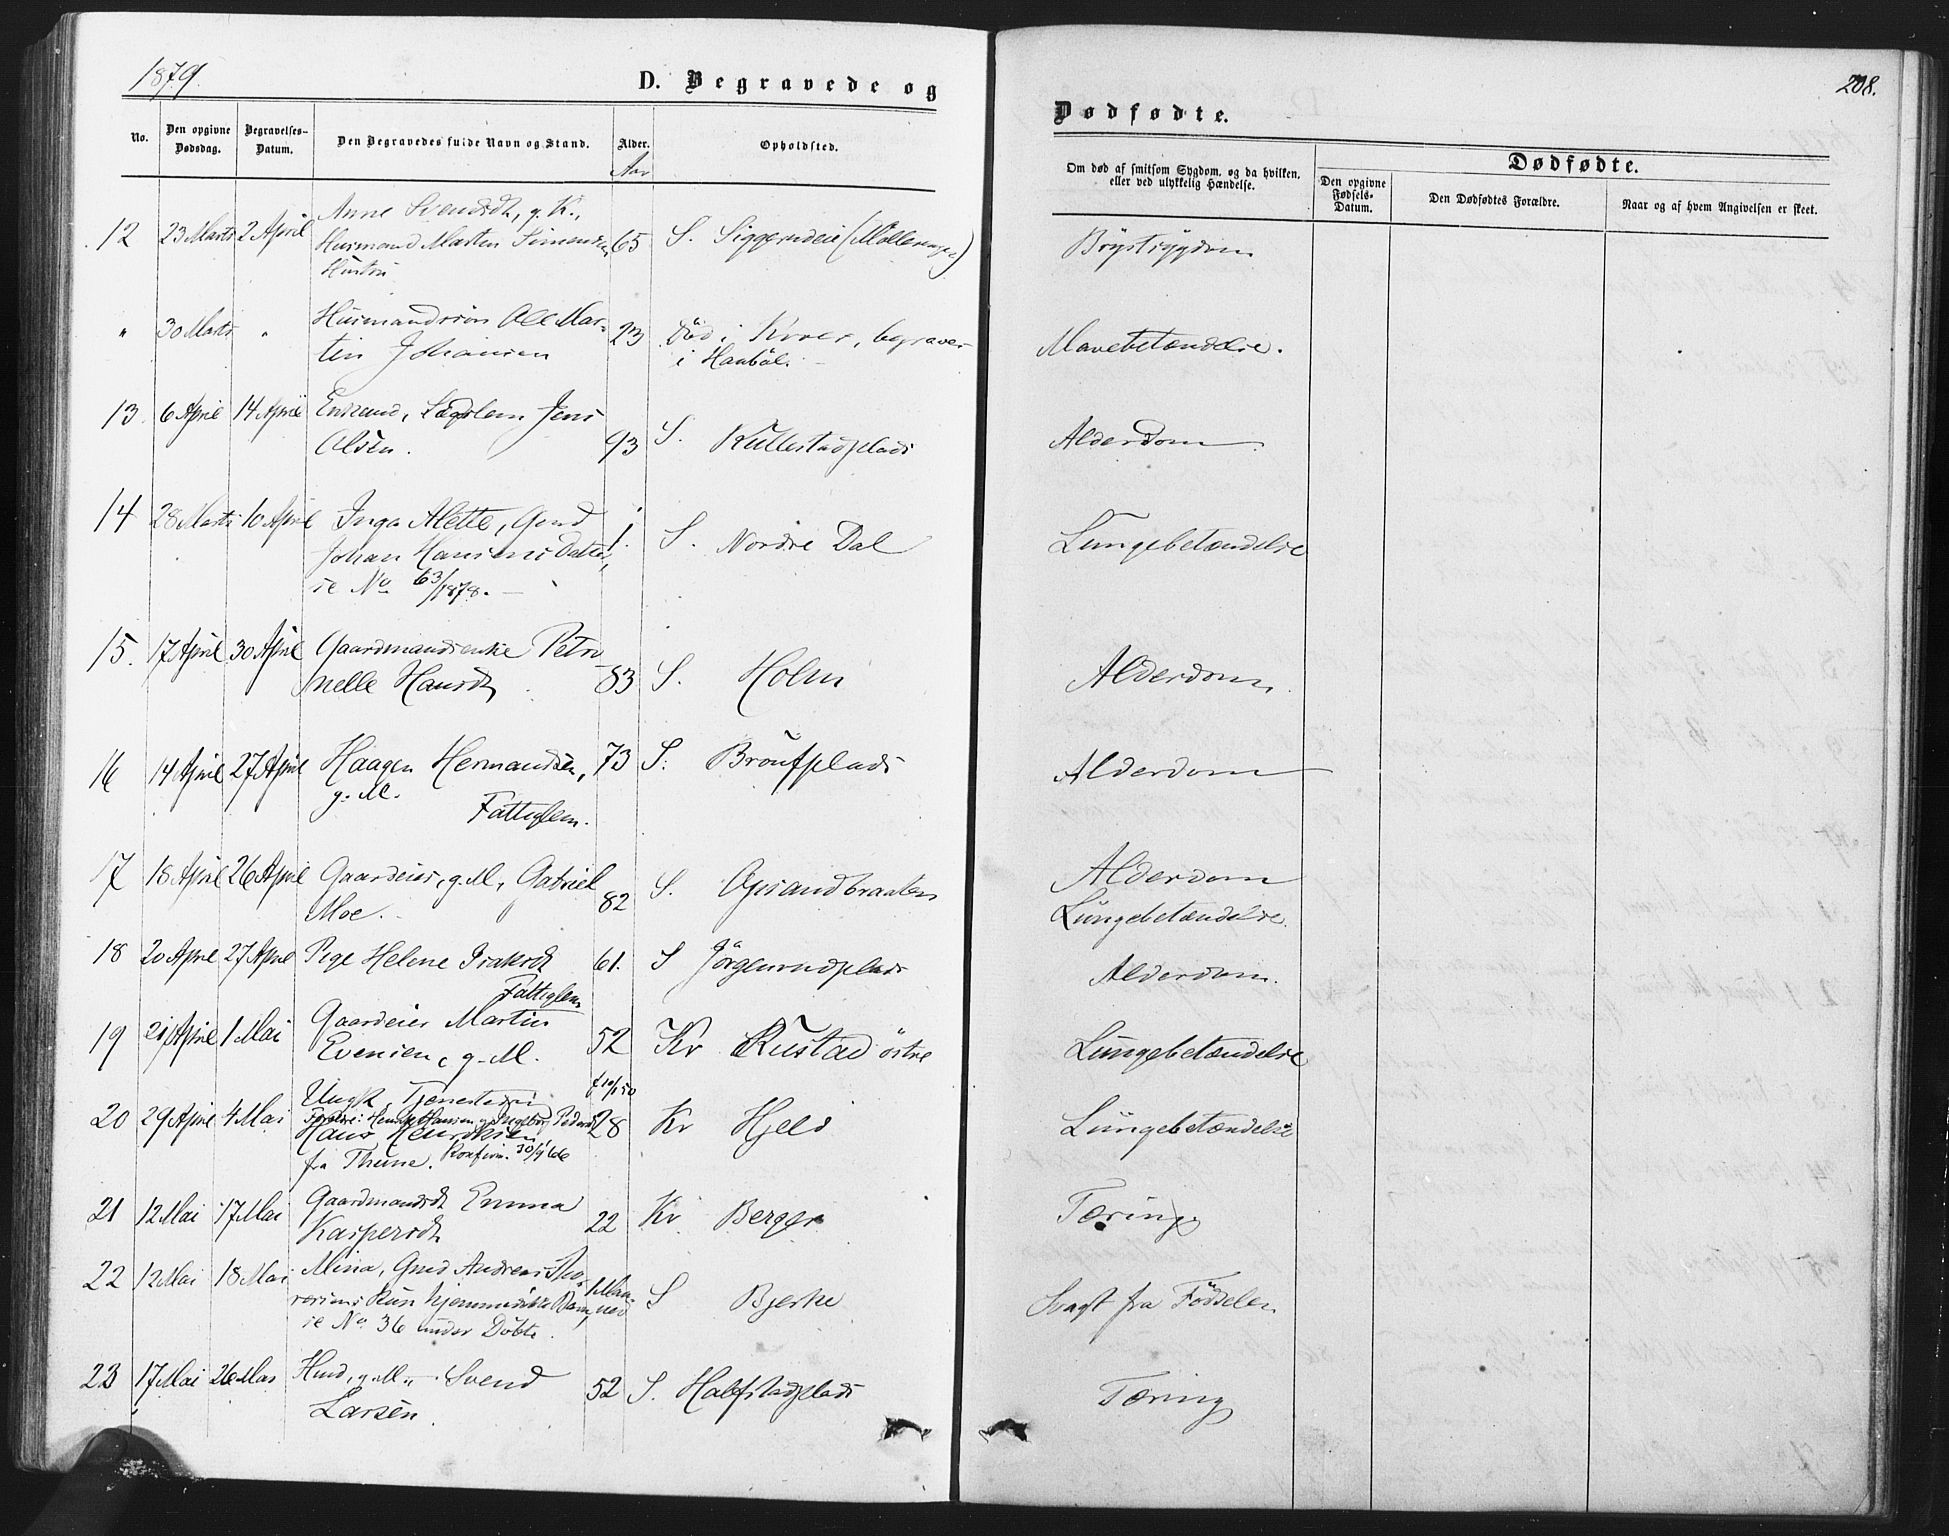 1879.
D. Begravede og
No.
Den opgivne Dødsdag.
Begravelses-Datum.
Den Begravedes fulde Navn og Stand.
Alder. Aar
Opholdsted.
12 23 Marts 2 April Anne Svendsdt, g. K.,
Husmand Morten Simensen 65 S. Siggerudeie
Hustru
" 30 Marts " Husmandssøn Ole Mar-
tin Johansen 23 Død i Kroer, begraven
i Haabøl.
13 6 April 14 April Enkemd, Lægdslem Jens
Olsen. 93 S. Kullestadplads
14 28 Marts 10 April Inga Alette, Gmd
Johan Hansens Datter, 1 S. Nordre Dal
se No 63/1878.
15. 17 April 30 April Gaardmandsenke Petro
nelle Hansdt 83 S. Holm
16 14 April 27 April Haagen Hermandsen, 73 S.
g. M.
Fattiglem.
17 18 April 26 April Gaardeier, g. M., Gabriel
Moe. 82 S. Opsandbraaten
18 20 April 27 April Pige Helene Isaksdt 61. S Jørgensrudplads
Fattiglem
19 21 April 1 Mai Gaardeier Martin
Evensen, g. M. 52 Kv Rustad østre
20 29 April 4 Mai Ungk. Tjenestedreng
Hans Henriksen 28 Kv Hjeld
fra Thune. Konfirm.
21 12 Mai 17 Mai Gaardmandsdt Emma
Kaspersdt 22 Kv Berger
22 12 Mai 18 Mai Mina, Gmd Andreas
hjemmedøbte Barn, 1 Maaned S Bjerke
se No 36 under Døbte.
23 17 Mai 26 Mai Hmd, g. M., Svend
Larsen 52 S. Halfstadplads
208.
Dødfødte.
Om død af smitsom Sygdom, og da hvilken,
eller ved ulykkelig Hændelse.
Dødfødte.
Den opgivne Fødsels-Datum.
Den Dødfødtes Forældre.
Naar og af hvem Angivelsen er skeet.
Brystsygdom
Mavebetændelse.
Alderdom
Lungebetændelse
Alderdom.
Alderdom
Alderdom
Lungebetændelse.
Alderdom.
Lungebetændelse
Lungebetændelse
Tæring
Svagt fra Fødselen
Tæring